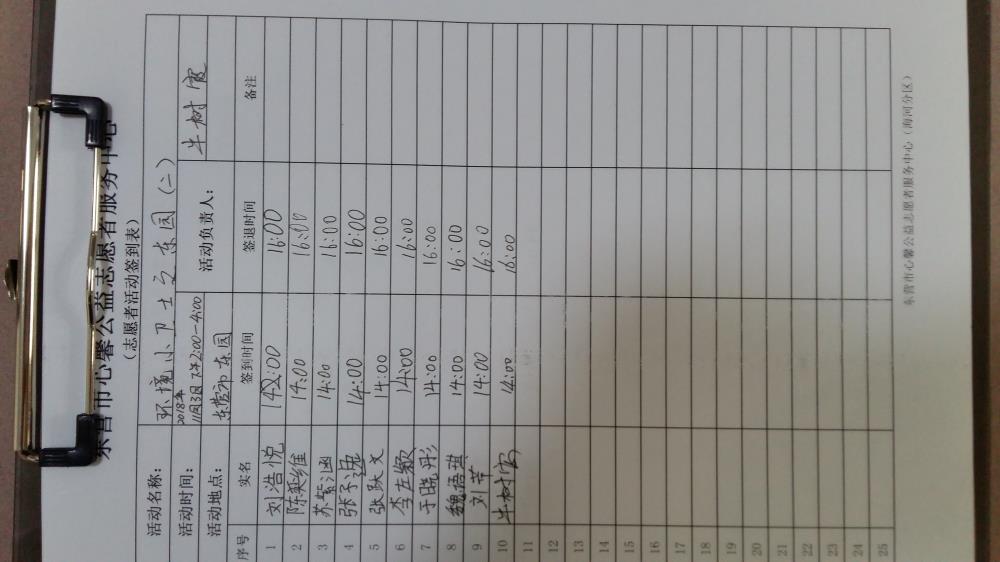 东营市心馨公益志愿者服务中心
（志愿者活动签到表）
活动名称： 环境小卫士之东园（二）
活动时间： 2018年11月3日 下午2:00—4:00
活动负责人： 牛树
活动地点： 东营市东园
序号 实名 签到时间 签退时间 备注
1 刘浩悦 14:00 16:00
2 陈奕维 14:00 16:00
3 苏紫涵 14:00 16:00
4 张 14:00 16:00
5 张耿文 14:00 16:00
6 李在颖 14:00 16:00
7 于晓彤 14:00 16:00
8 魏浯琪 14:00 16:00
9 刘芊 14:00 16:00
10 牛树 14:00 16:00
11
12
13
14
15
16
17
18
19
20
21
22
23
24
25
东营市心馨公益志愿者服务中心（海河分区）